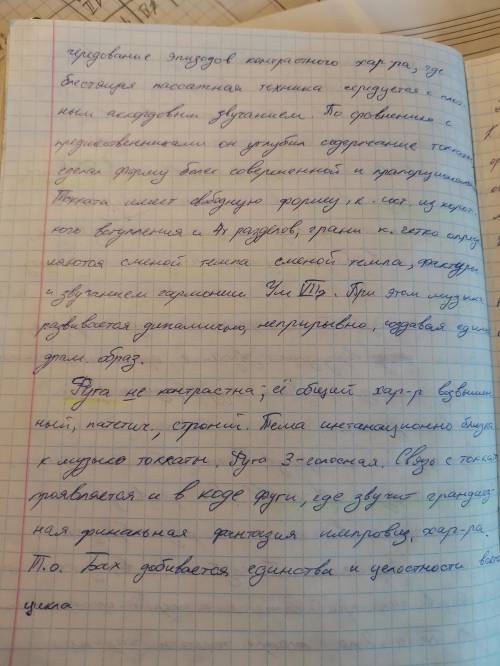 чередование эпизодов контрастного хар-ра, где
блестящая пассажная техника чередуется с плот-
ным аккордовым звучанием. По сравнению с
предшественниками он углубил содержание токкаты
сделал форму более совершенной и пропорциональной
Токката имеет свободную форму, к. сост. из корот-
кого вступления и 4х разделов, грани к. четко опред
ляются сменой темпа сменой темпа, фактуры
и звучанием гармонии Ум VII7. При этом музыка
развивается динамично, неприрывно, создавая един
драм. образ.
Фуга не контрастна; её общий хар-р возвышен
ный, патетич., строгий. Тема интанационно близка
к музыке токкаты. Фуга 3-голосная. Связь с токкат
проявляется и в коде фуги, где звучит грандиоз
ная финальная фантазия импровиз. хар-ра.
Т.о. Бах добивается единства и целостности всего
цикла